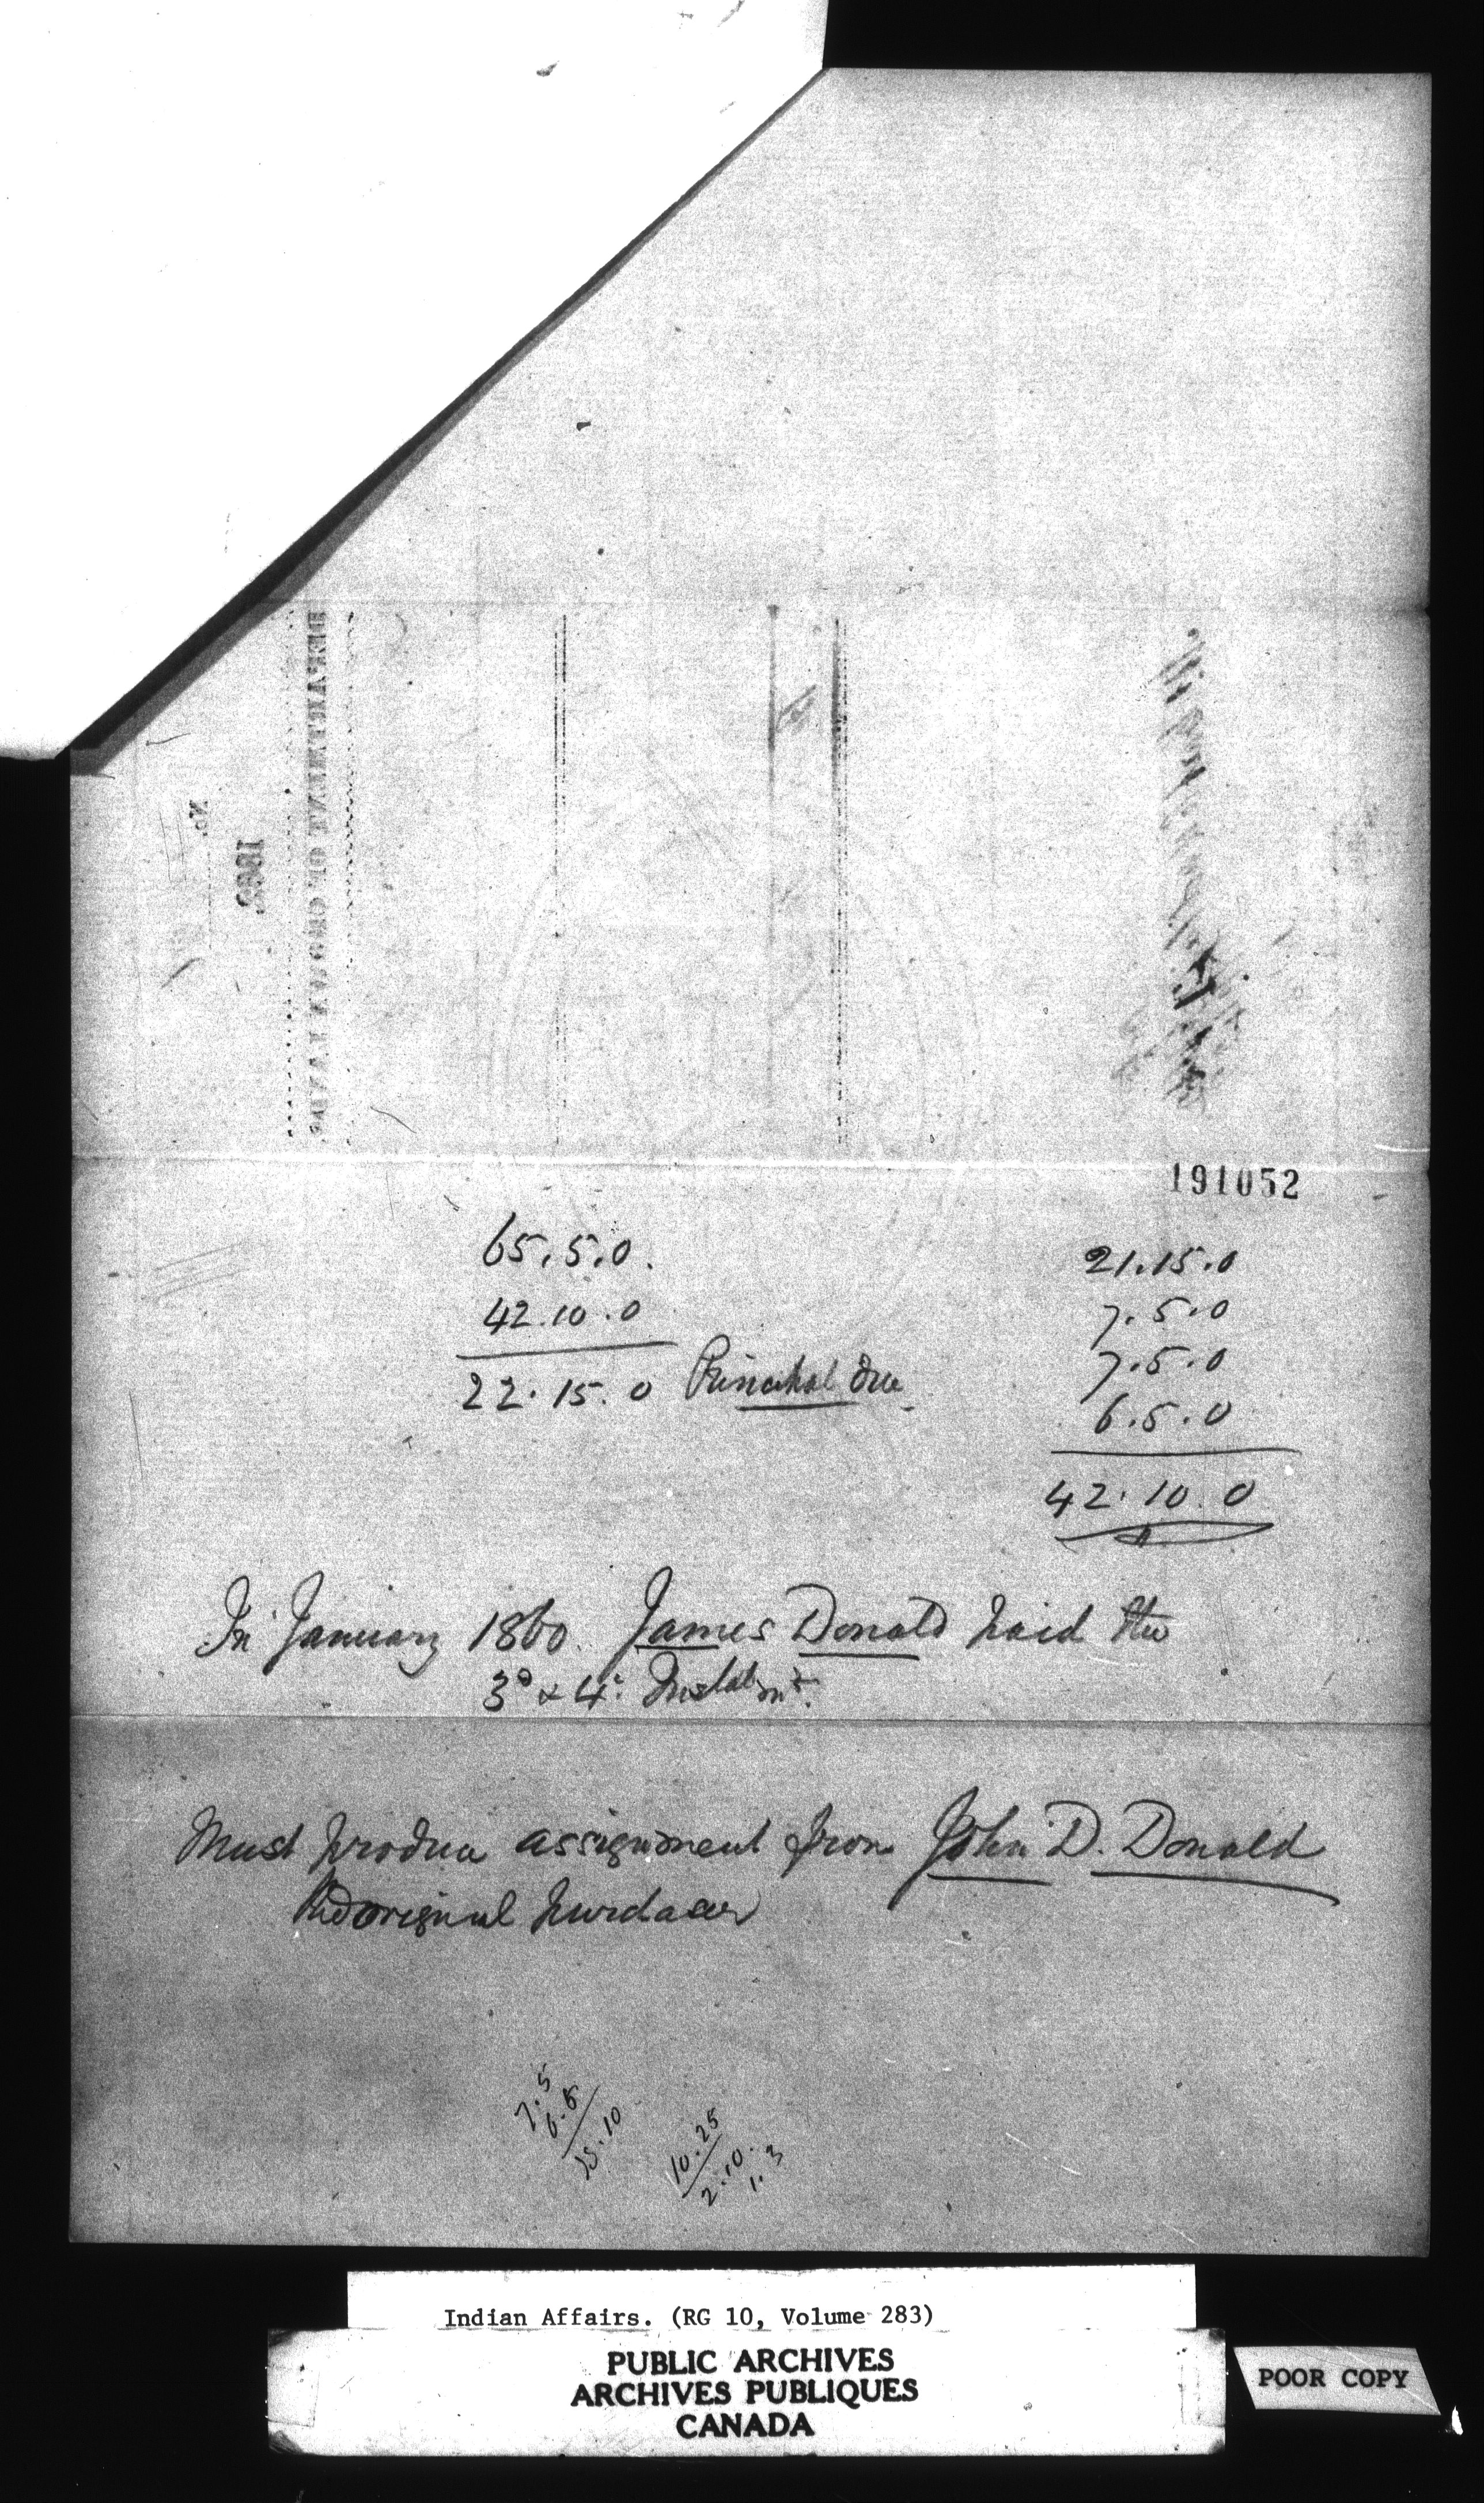 DEPARTMENT OF CROWN LANDS
No.
191052
65.5.0.
42.10.0
22.15.0 Principal due
21.15.0
7.5.0
7.5.0
6.5.0
42.10.0
In January 1860. James Donald paid the
3d & 4th Instalmt.
Must produce assignment from John D. Donald
the original purchaser
7.5
6.5
10.25
2.10.
1.3
Indian Affairs. (RG 10, Volume 283)
PUBLIC ARCHIVES
ARCHIVES PUBLIQUES
CANADA
POOR COPY